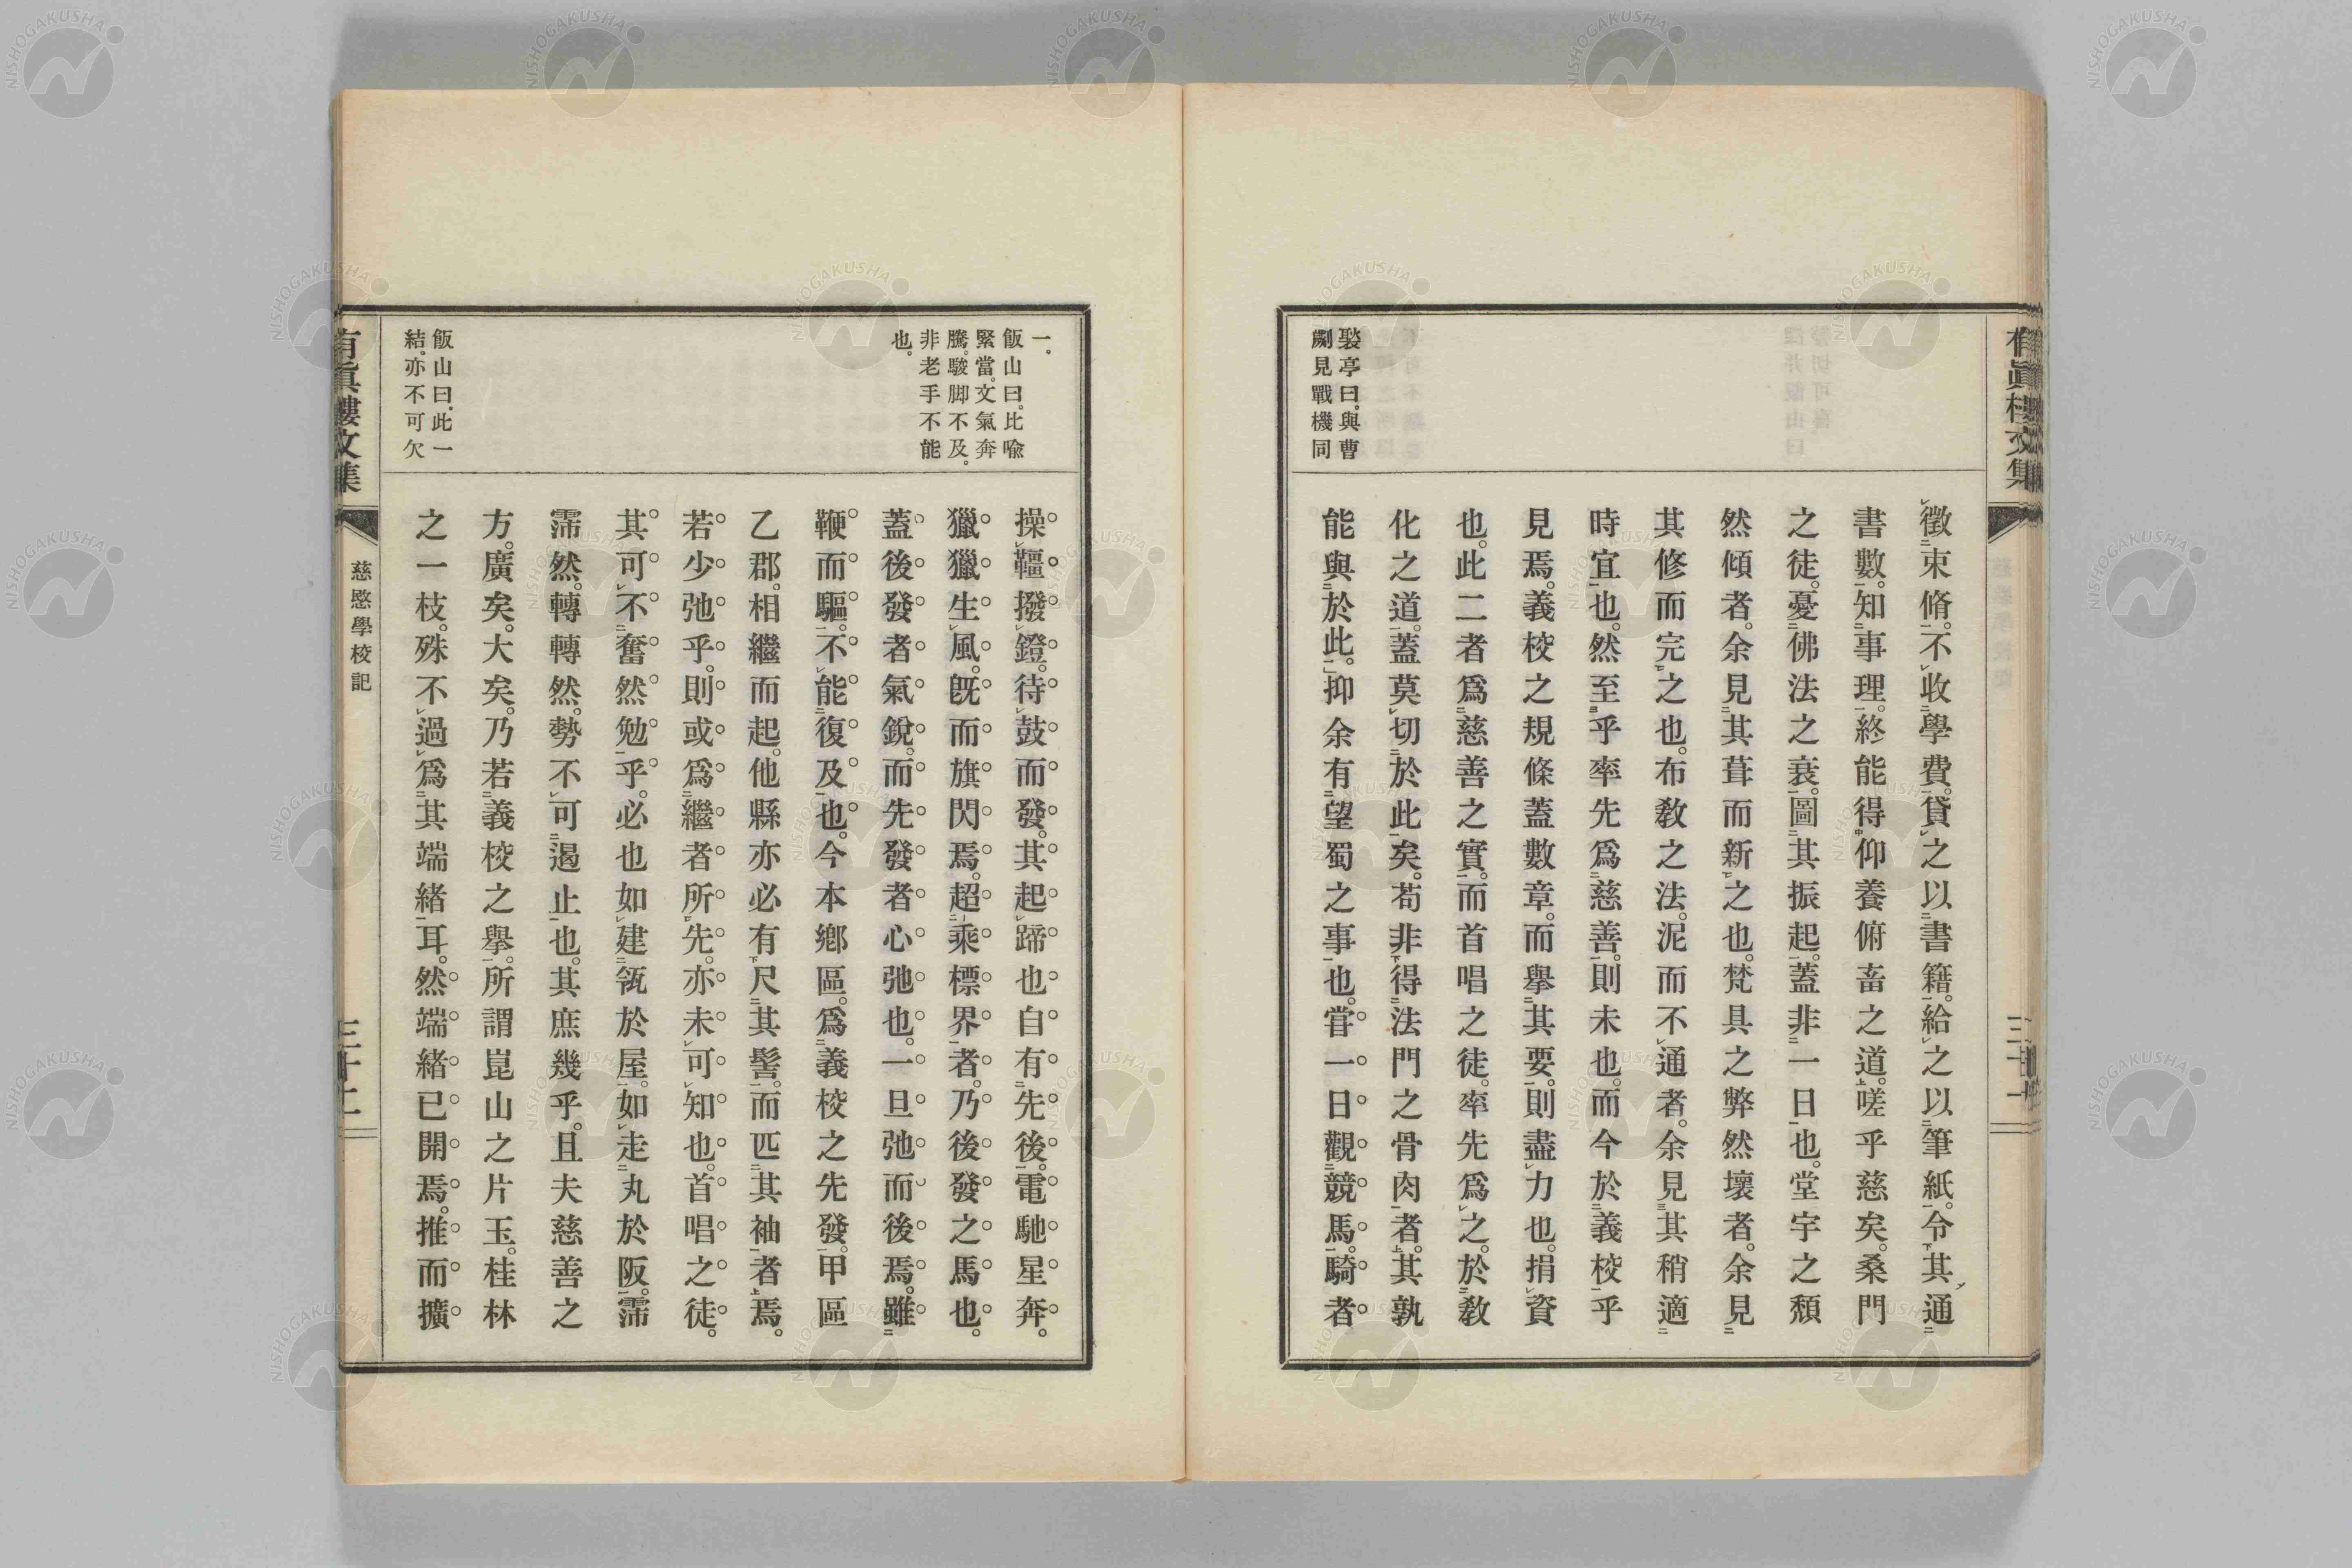 徵束脩。不收學費。貸之以書籍。給之以筆紙。令其通
書數。知事理。終能得仰養俯畜之道。嗟乎慈矣。桑門
之徒。憂佛法之衰。圖其振起。蓋非一日也。堂宇之頽
然傾者。余見其葺而新之也。梵具之弊然壞者。余見
其修而完之也。布教之法。泥而不通者。余見其稍適
時宜也。然至乎率先爲慈善。則未也。而今於義校乎
見焉。義校之規條蓋數章。而擧其要。則盡力也。捐資
也。此二者爲慈善之實。而首唱之徒。率先爲之。於教
化之道。蓋莫切於此矣。苟非得法門之骨肉者。其孰
能與於此。抑余有望蜀之事也。甞一日觀競馬。騎者
聚亭曰。與曹
劌見戰機同
一。
飯山曰。比喩
緊當。文氣奔
騰。駿脚不及。
非老手不能
也。
操韁撥鐙。待鼓而發。其起蹄也自有先後。電馳星奔。
獵獵生風。旣而旗閃焉。超乘標界者。乃後發之馬也。
蓋後發者氣銳。而先發者心弛也。一旦弛而後焉。雖
鞭而驅。不能復及也。今本鄉區。爲義校之先發。甲區
乙郡。相繼而起。他縣亦必有尺其髻。而匹其袖者焉。
若少弛乎。則或爲繼者所先。亦未可知也。首唱之徒。
其可不奮然勉乎。必也如建瓴於屋。如走丸於阪。霈
霈然。轉轉然。勢不可遏止也。其庶幾乎。且夫慈善之
方。廣矣。大矣。乃若義校之擧。所謂崑山之片玉。桂林
之一枝。殊不過爲其端緒耳。然端緒已開焉。推而擴
飯山曰。此一
結。亦不可欠
慈愍學校記
三十二